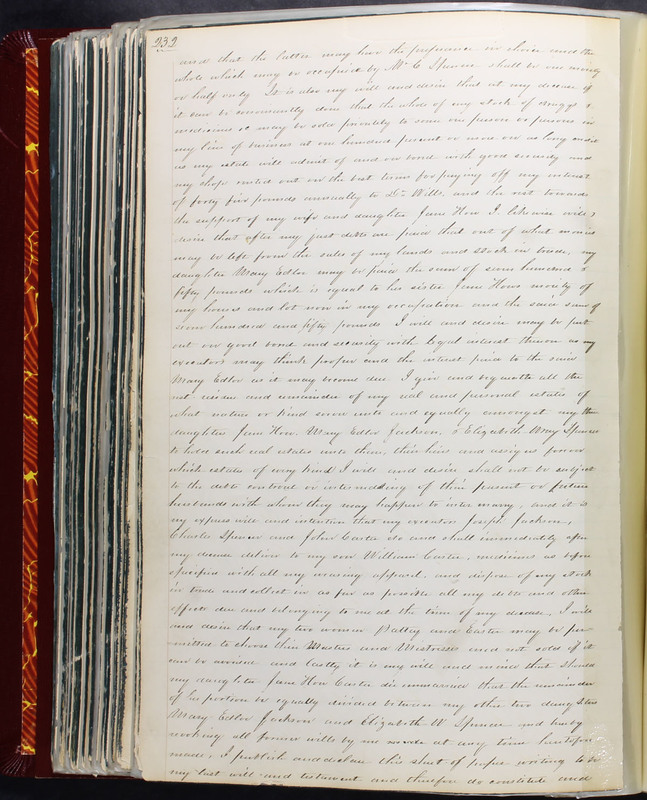 232
and that the latter may have the preference in choice and the
whole which may be occupied by Mr. C Spencer shall be one moiety
or half only It is also my will and desire that at my decease if
it can be conveniently done that the whole of my stock of drugs &
medicines &c may be sold privately to some one person or persons in
my line of business at one hundred percent or more on as long credit
as my estate will admit of and on bond with good security and
my shop rented out on the best terms for paying off my interest
of forty five pounds annually to Dr. Wills. and the rest towards
the support of my wife and daughter Jane How I likewise will &
desire that after my just debts are paid that out of what monies
may be left from the sales of my lands and stock in trade, my
daughter Mary Edlor may be paid the sum of seven hundred &
fifty pounds which is equal to his sister Jane Hows moiety of
my houses and lot now in my occupation and the said sum of
seven hundred and fifty pounds I will and desire may be put
out on good bond and security with legal interest thereon as my
executors may think proper and the interest paid to the said
Mary Edlor as it may become due. I give and bequeathe all the
rest residue and remainder of my real and personal estates of
what nature or kind soever unto and equally amongst my three
daughters Jane How, Mary Edlor Jackson, & Elizabeth Way Spencer
to hold such real estates unto them, their heirs and assigns forever
which estates of every kind I will and desire shall not be subject
to the debts controul or intermedling of their present or future
husbands with whom they may happen to inter marry, and it is
my express will and intention that my executors Joseph Jackson,
Charles Spencer and John Carter do and shall immediately after
my decease deliver to my son William Carter, medicines as before
specified with all my wearing apparel, and dispose of my stock
in trade and collect in as far as possible all my debts and other
effects due and belonging to me at the time of my decease. I will
and desire that my two women Patty and Easter may be per
mitted to choose their Masters and Mistresses and not sold if it
can be avoided and lastly it is my will and mind that should
my daughter Jane How Carter die unmarried that the remainder
of her portion be equally divided between my other two daughters
Mary Edlor Jackson and Elizabeth W Spencer and hereby
revoking all former wills by me made at any time heretofore
made, I publish and declare this sheet of paper writing to be
my last will and testament and therefore do constitute and